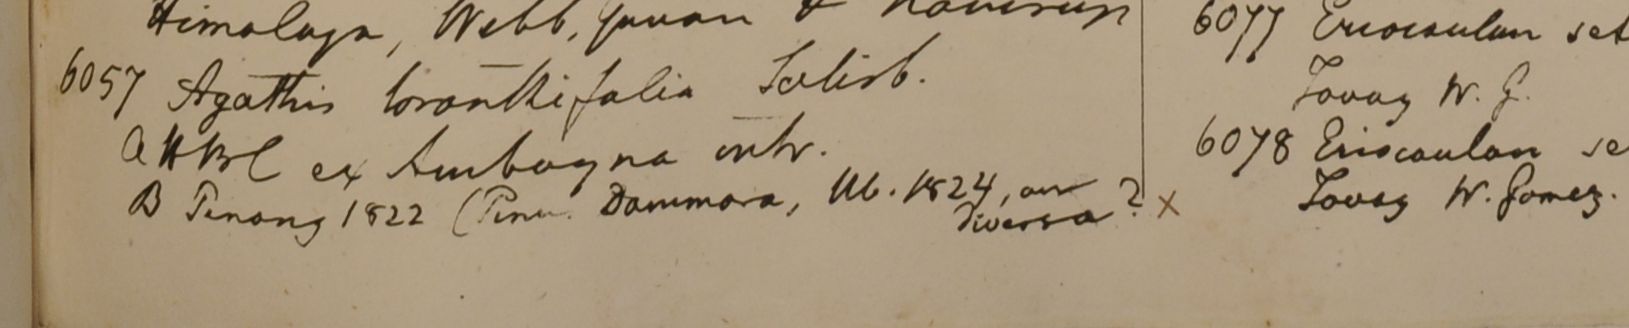 Himalaya, Webb, Govan &
6057 Agathis loranthifolia Salisb.
A HBC ex Amboyna intr.
B Penang 1822 (Pinu. Dammara, Ub. 1824, an
diversa?
6077 Eriocaulon set
Tavoy W. G.
6078 Eriocaulon se
Tavoy W. Gomez.